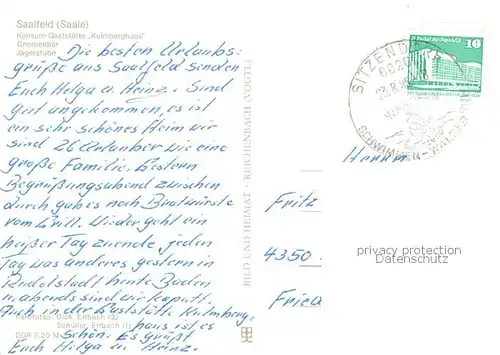 Saalfeld (Saale)
Konsum-Gaststätte „Kulmberghaus"
Gnomenbar
Jägerstube
Die besten Urlaubs-
grüße aus Saalfeld senden
Euch Helga u. Heinz. Sind
gut angekommen, es ist
ein sehr schönes Heim wir
sind 26 Urlauber wie eine
große Familie. Gestern
Begrüßungsabend zwischen
durch gab es noch Bratwürste
vom Grill. Wieder geht ein
heißer Tag zuende jeden
Tag was anderes gestern in
Rudolstadt heute Baden
u. abends sind wir kaputt.
Auch in der Gaststätte Kulmberg-
haus ist es
schön. Es grüßt
Euch Helga u. Heinz.
Farbfotos: Dick, Erlbach (2)
Schuller, Erlbach (1)
DDR 0,20 M
BILD UND HEIMAT · REICHENBACH (VOGTL)
SITZENDORF
6820
SCHWIMMEN - WALD
10
Herrn
Fritz
4350
Fried
privacy protection
Datenschutz